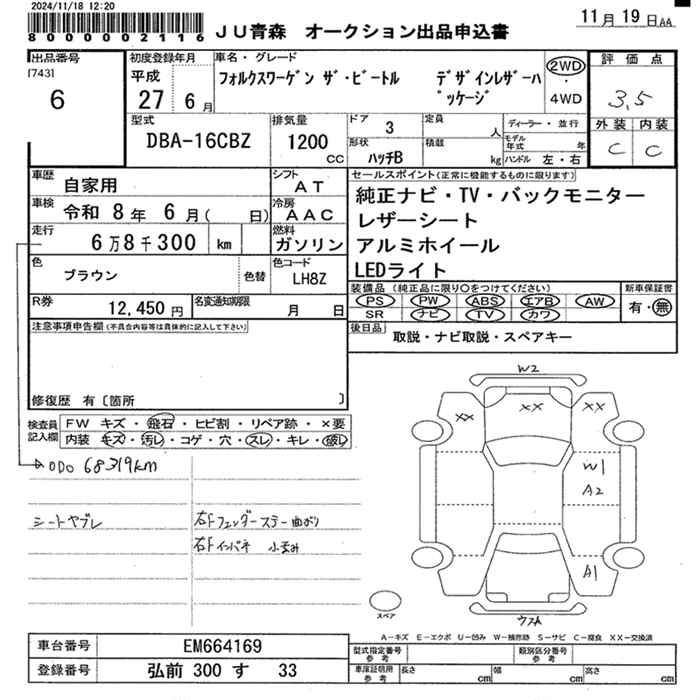 2024/11/18 12:20
8000002116
JU青森 オークション出品申込書
11月19日AA
出品番号
[743]
6
初度登録年月
平成
27 6月
車名・グレード
フォルクスワーゲン ザ・ビートル デザインレザーパッケージ
2WD
・
4WD
評価点
3.5
外装 内装
C C
型式
DBA-16CBZ
排気量
1200
cc
ドア 3
形状 ハッチB
定員 人
積載 kg
ディーラー・並行
モデル年式 年
ハンドル 左・右
車歴
自家用
シフト
AT
車検
令和 8年 6月( 日)
冷房
AAC
走行
6万8千300 km
燃料
ガソリン
色
ブラウン
色替
色コード
LH8Z
R券
12,450円
名変通知期限
月 日
セールスポイント(正常に機能するものに限ります)
純正ナビ・TV・バックモニター
レザーシート
アルミホイール
LEDライト
装備品(純正品に限り○をつけてください)
PS PW ABS エアB AW
SR ナビ TV カワ
新車保証書
有・無
後日品
取説・ナビ取説・スペアキー
注意事項申告欄(不具合内容等は具体的に記入して下さい)
修復歴 有〔箇所 〕
検査員記入欄
FW キズ・飛石・ヒビ割・リペア跡・×要
内装 キズ・汚レ・コゲ・穴・スレ・キレ・破レ
ODO 68319km
シートヤブレ
右Fフェンダーステー曲がり
右Fインパネ 小歪み
W2
XX XX XX
W1
A2
A1
スペア
A-キズ E-エクボ U-凹み W-補修跡 S-サビ C-腐食 XX-交換済
車台番号
EM664169
登録番号
弘前 300 す 33
型式指定番号
参考
類別区分番号
参考
車庫証明用
参考
長さ cm
幅 cm
高さ cm